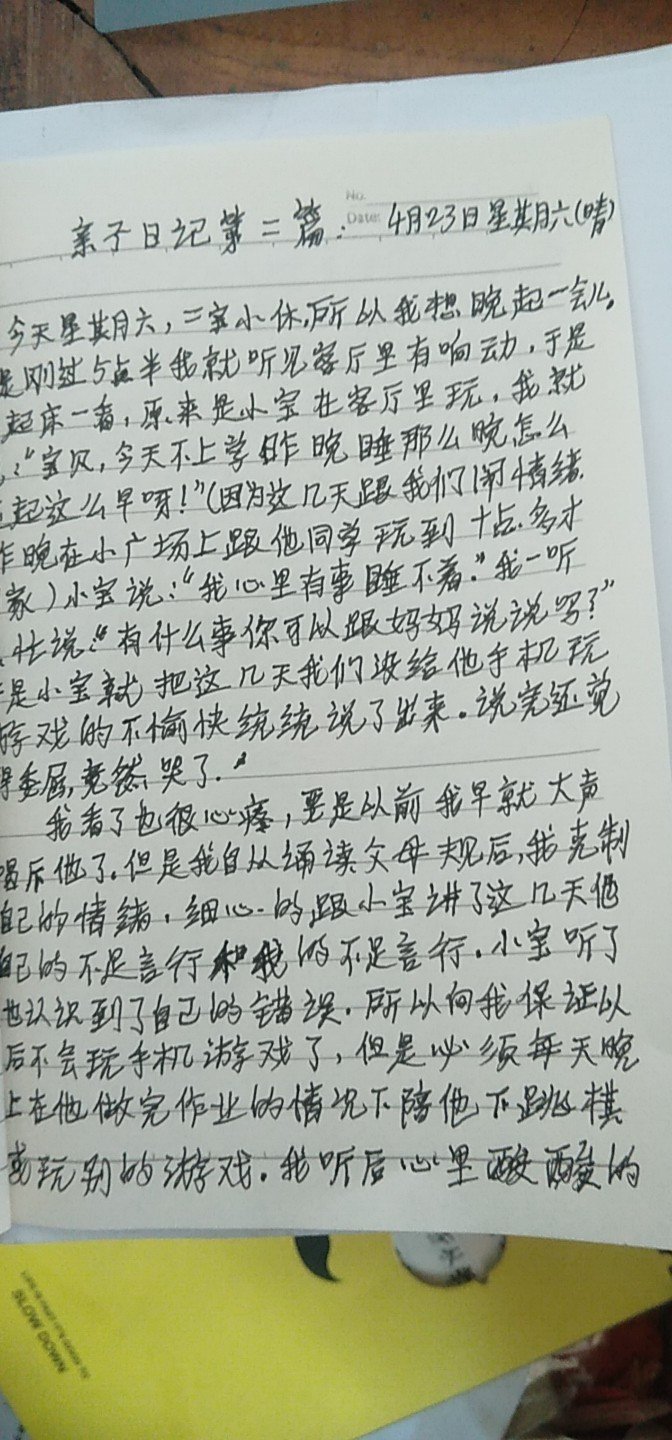 No.
Date:
亲子日记第二篇: 4月23日星期六(晴)
今天星期六,二宝小休,所以我想晚起一会儿。
是刚过5点半我就听见客厅里有响动,于是
起床一看,原来是小宝在客厅里玩,我就
:“宝贝,今天不上学昨晚睡那么晚怎么
起这么早呀!”(因为这几天跟我们闹情绪
昨晚在小广场上跟他同学玩到十点多才
家)小宝说:“我心里有事睡不着。”我一听
忙说:“有什么事你可以跟妈妈说说吗?”
于是小宝就把这几天我们没给他手机玩
游戏的不愉快统统说了出来。说完还觉
得委屈,竟然哭了。
我看了也很心疼,要是以前我早就大声
喝斥他了。但是我自从诵读父母规后,我克制
自己的情绪,细心的跟小宝讲了这几天他
自己的不足言行和我的不足言行。小宝听了
也认识到了自己的错误。所以向我保证以
后不会玩手机游戏了,但是必须每天晚
上在他做完作业的情况下陪他下跳棋
或玩别的游戏。我听后心里酸酸的
SLOW DOWN